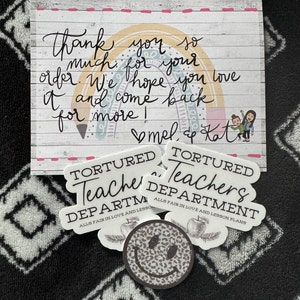 Thank you so
much for your
order. We hope you love
it and come back
for more!
♡ mel & Kat
TORTURED
Teachers
DEPARTMENT
ALLS FAIR IN LOVE AND LESSON PLANS
TORTURED
Teachers
DEPARTMENT
ALLS FAIR IN LOVE AND LESSON PLANS